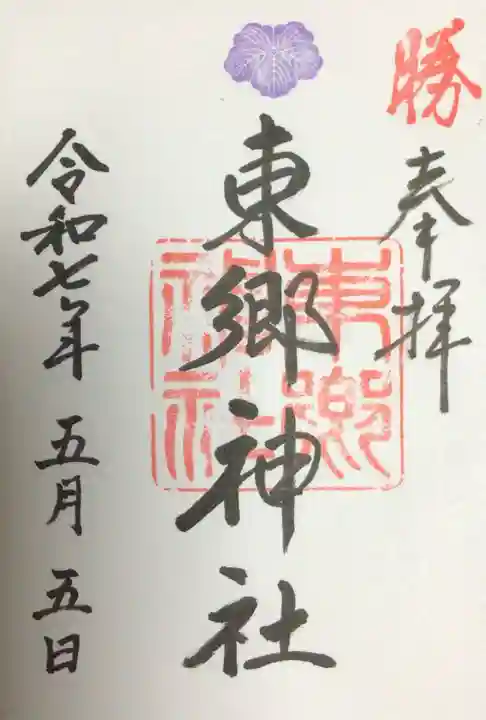 勝
奉拝
東郷神社
東郷神社
令和七年五月五日